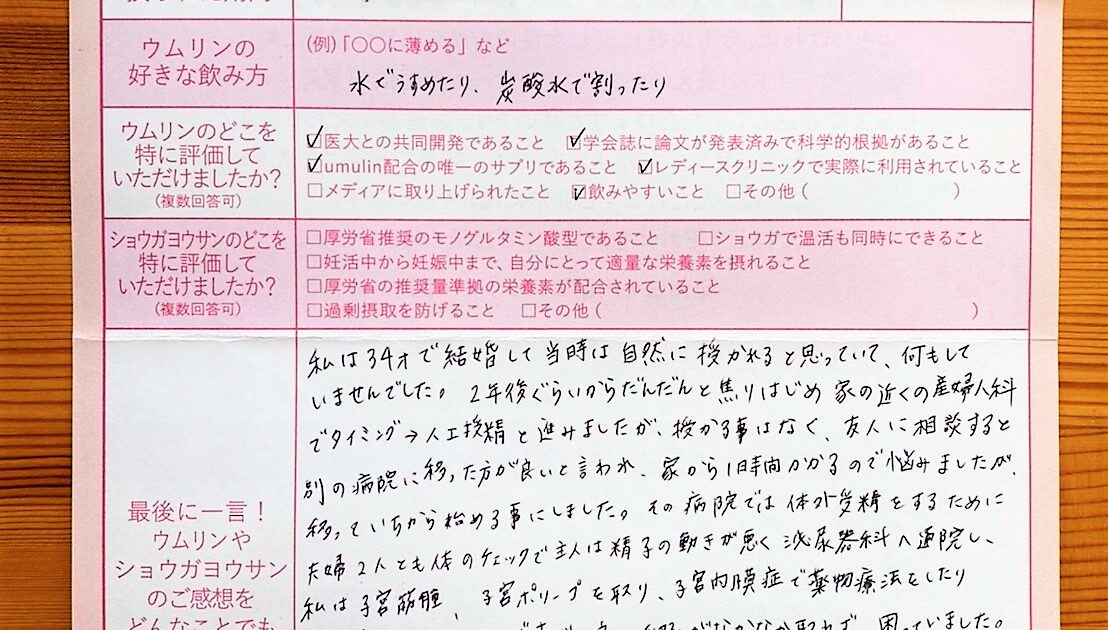 ウムリンの
好きな飲み方
(例)「〇〇に薄める」など
水でうすめたり、炭酸水で割ったり
ウムリンのどこを
特に評価して
いただけましたか?
(複数回答可)
☑医大との共同開発であること ☑学会誌に論文が発表済みで科学的根拠があること
☑umulin配合の唯一のサプリであること ☑レディースクリニックで実際に利用されていること
□メディアに取り上げられたこと ☑飲みやすいこと □その他( )
ショウガヨウサンのどこを
特に評価して
いただけましたか?
(複数回答可)
□厚労省推奨のモノグルタミン酸型であること □ショウガで温活も同時にできること
□妊活中から妊娠中まで、自分にとって適量な栄養素を摂れること
□厚労省の推奨量準拠の栄養素が配合されていること
□過剰摂取を防げること □その他( )
最後に一言!
ウムリンや
ショウガヨウサン
のご感想を
どんなことでも
私は34才で結婚して当時は自然に授かれると思っていて、何もして
いませんでした。2年後ぐらいからだんだんと焦りはじめ家の近くの産婦人科
でタイミング→人工授精と進みましたが、授かる事はなく、友人に相談すると
別の病院に移った方が良いと言われ、家から1時間かかるので悩みましたが、
移っていちから始める事にしました。その病院では体外受精をするために
夫婦2人とも体のチェックで主人は精子の動きが悪く泌尿器科へ通院し、
私は子宮筋腫、子宮ポリープを取り、子宮内膜症で薬物療法をしたり
がなかなか取れず、困っていました。